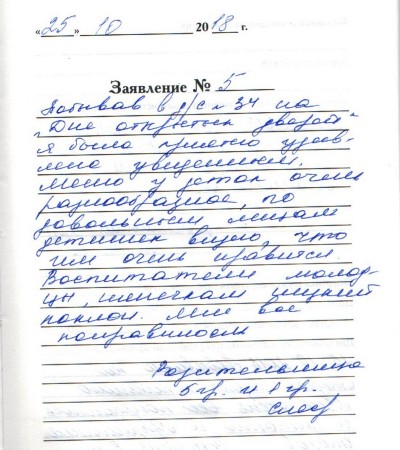 «25» 10 2018 г.
Заявление № 5
Побывав в д/с № 34 на
"Дне открытых дверей"
я была приятно удив-
лена увиденным.
Меню у деток очень
разнообразное, по
довольным лицам
детишек видно, что
им очень нравится.
Воспитатели молод-
цы, нянечкам низкий
поклон. Мне все
понравилось
Родительница
6 гр. и 1 гр.